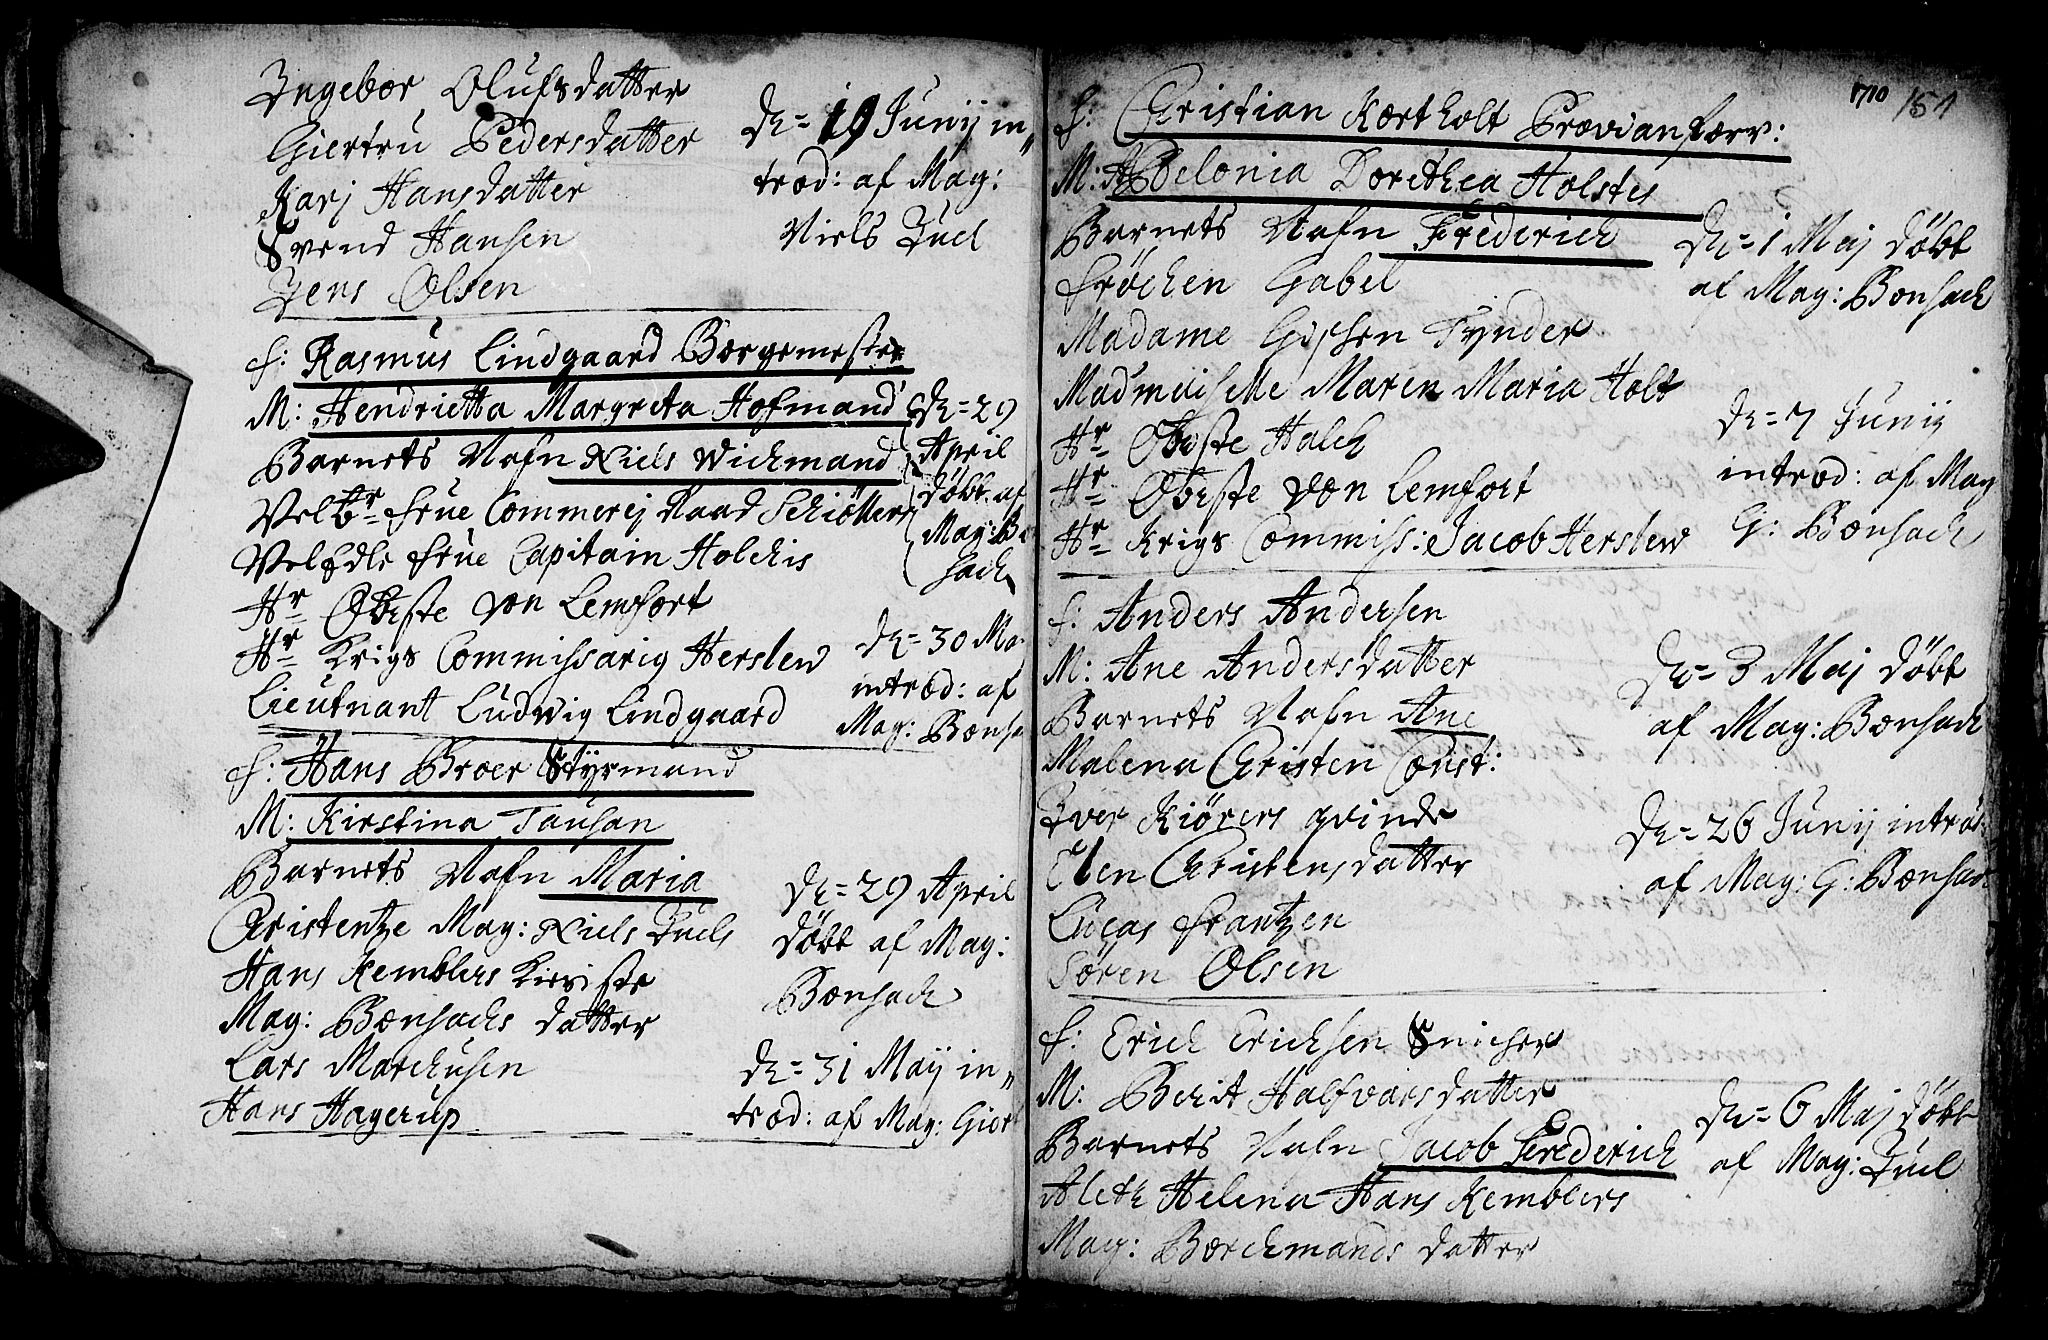 Ingebor Olufsdatter
Giertru Pedersdatter
Karj Hansdatter
Svend Hansen
Jens Olsen
De = 19 Junij in„
trod: af Mag:
Niels Juel
F: Rasmus Lindgaard Borgemester
M: Hendrietta Margreta Hofmand
Barnets Nafn Niels Wichmand
Velbr frue Commercj Raad Schiøtters
VelEdle frue Capitain Holchis
Hr Obeste von Lemfort
Hr Krigs Commissarig Herslew
Lieutnant Ludwig Lindgaard
De = 29
April
døbt af
Mag: Bo
sach
De = 30 Ma
introd: af
Mag: Bonsa
F: Hans Broer Styrmand
M: Kirstina Tausan
Barnets Nafn Maria
Christentze Mag: Niels Juels
Hans Kemblers Kieviste
Mag: Bonsachs datter
Lars Marchusen
Hans Hagerup
De = 29 April
døbt af Mag:
Bonsach
De = 31 Maij in„
trod: af Mag: Giort
1710 151
F: Christian Kortholt Provianforv:
M: Abelonia Dorethea Holstes
Barnets Nafn Frederich
Frøchen Gabel
Madame Gissen Tynder
Madmuiselle Maren Maria Holt
Hr Obeste Halch
Hr Obeste von Lemfort
Hr Krigs Commiss: Jacob Herslew
De = 1 Maj døbt
af Mag: Bonsach
De = 7 Junij
introd: af Mag
G: Bonsach
F: Anders Andersen
M: Ane Andersdatter
Barnets Nafn Ane
Malena Christen Const:
Iver Kiørers qvinde
Elen Christensdatter
Lucas Frantzen
Sören Olsen
De = 3 Maj døbt
af Mag: Bonsach
De = 26 Junij introd:
af Mag: G: Bonsach
F: Erich Erichsen Snicher
M: Berit Halfvorsdatter
Barnets Nafn Jacob Frederich
Aleth Helena Hans Kemblers
Mag: Borchmands datter
De = 6 Maj døbt
af Mag: Juel